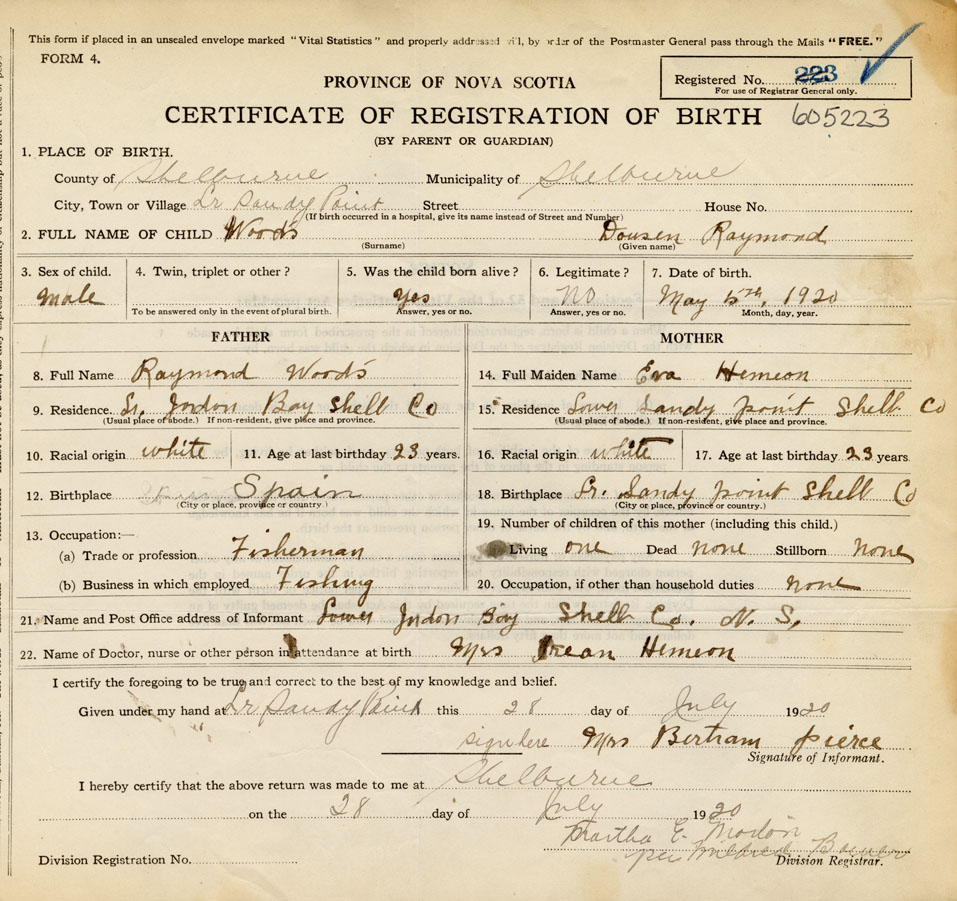 This form if placed in an unsealed envelope marked "Vital Statistics" and properly addressed will, by order of the Postmaster General pass through the Mails "FREE."
FORM 4.
PROVINCE OF NOVA SCOTIA
Registered No. 223
For use of Registrar General only.
CERTIFICATE OF REGISTRATION OF BIRTH 605223
(BY PARENT OR GUARDIAN)
1. PLACE OF BIRTH.
County of Shelburne Municipality of Shelburne
City, Town or Village Lr Sandy Point Street House No.
(If birth occurred in a hospital, give its name instead of Street and Number)
2. FULL NAME OF CHILD Woods Dousen Raymond
(Surname) (Given name)
3. Sex of child. 4. Twin, triplet or other? 5. Was the child born alive? 6. Legitimate? 7. Date of birth.
Male Yes NO May 15th, 1920
To be answered only in the event of plural birth. Answer, yes or no. Answer, yes or no. Month, day, year.
FATHER MOTHER
8. Full Name Raymond Woods 14. Full Maiden Name Eva Hemeon
9. Residence. Lr. Jordon Bay Shell Co 15. Residence Lower Sandy point Shell Co
(Usual place of abode.) If non-resident, give place and province. (Usual place of abode.) If non-resident, give place and province.
10. Racial origin white 11. Age at last birthday 23 years. 16. Racial origin white 17. Age at last birthday 23 years
12. Birthplace Spain 18. Birthplace Lr. Sandy point Shell Co
(City or place, province or country.) (City or place, province or country.)
13. Occupation:— 19. Number of children of this mother (including this child.)
(a) Trade or profession Fisherman Living one Dead none Stillborn None
(b) Business in which employed Fishing 20. Occupation, if other than household duties none
21. Name and Post Office address of Informant Lower Jordon Bay Shell Co. N. S,
22. Name of Doctor, nurse or other person in attendance at birth Mrs Hemeon
I certify the foregoing to be true and correct to the best of my knowledge and belief.
Given under my hand at Lr Sandy Point this 28 day of July 1920
sign here Mrs Bertram pierce
Signature of Informant.
I hereby certify that the above return was made to me at Shelburne
on the 28 day of July 1920
Martha E.
per Mildred
Division Registration No. Division Registrar.